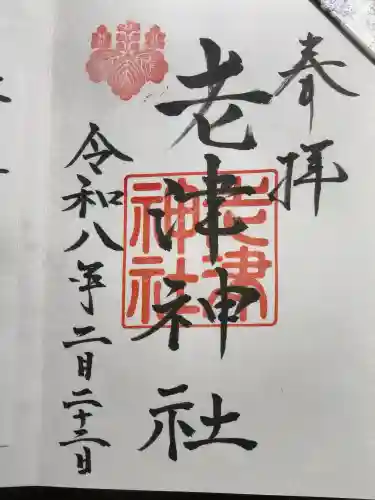 奉拝
老津神社
老津
神社
令和八年二月二十二日